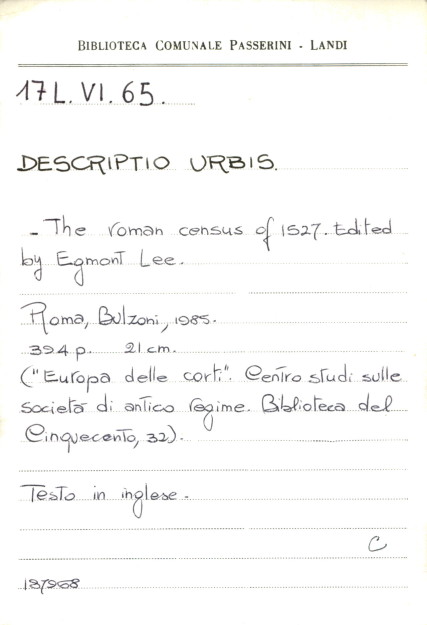 BIBLIOTECA COMUNALE PASSERINI - LANDI
17L. VI. 65.
DESCRIPTIO URBIS.
- The roman census of 1527. Edited
by Egmont Lee.
Roma, Bulzoni, 1985.
394 p. 21 cm.
("Europa delle corti". Centro studi sulle
società di antico regime. Biblioteca del
Cinquecento, 32).
Testo in inglese.
C